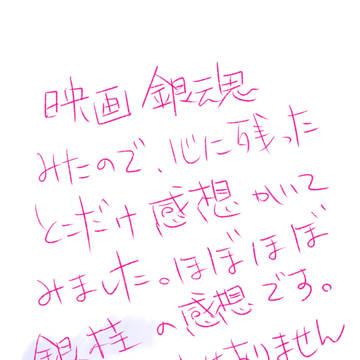 映画 銀魂
みたので、心に残った
とこだけ感想かいて
みました。ほぼほぼ
銀桂の感想です。
ありません